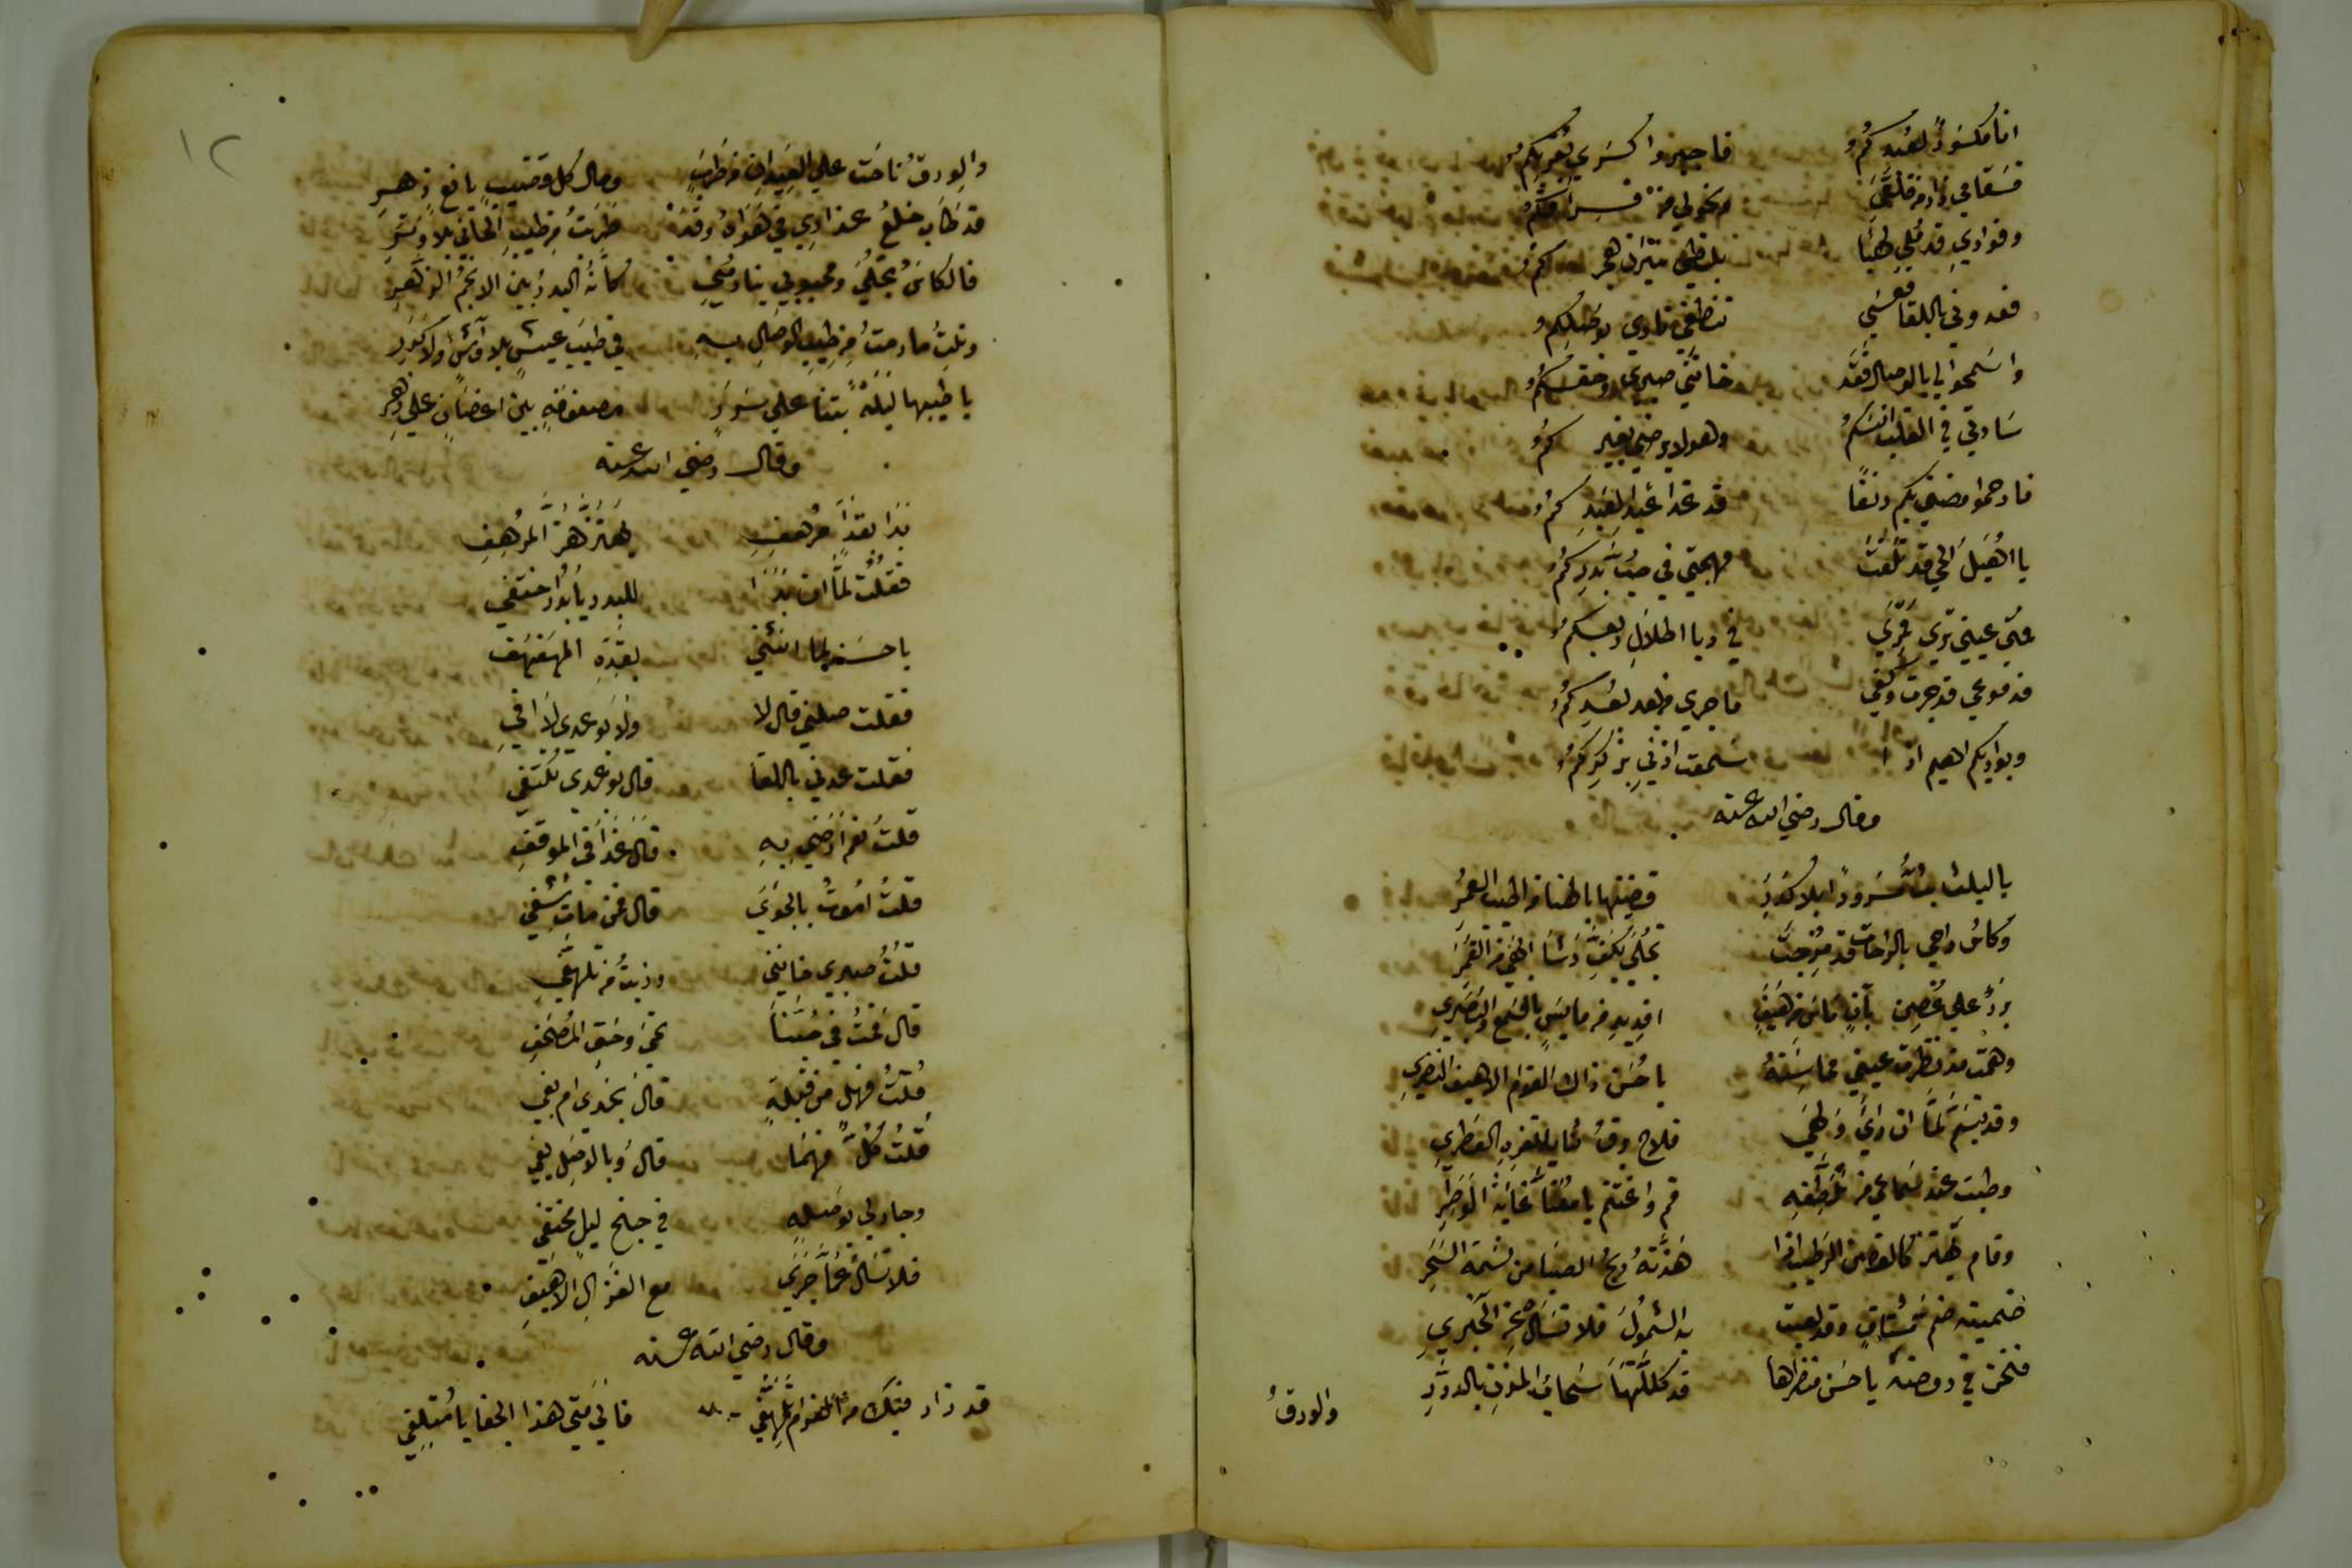 انا مكسور لبعدكم فاجبروا كسري بقربكم
فسقامي زاد من قلقي ونحولي من فراقكم
وفؤادي قد قلي طبا بلظي نيران هجركم
فعدوني باللقا فعسي تنطفي ناري بوصلكم
واسمحوا لي بالوصال فقد خانني صبري وحقكم
سادتي في القلب انسكم وهو لا يرضي بغيركم
فارحموا مضني بكم دنفا قد غدا عبدا لعبدكم
يا اهيل الحي قد تلفت مهجتي في حب بدركم
متي عيني تري قمري في ربا اطلال ربعكم
فدموعي قد جرت وكفي ما جري من بعد بعدكم
وبواديكم اهيم اذا سمعت اذني بذكركم
وقال رضي الله عنه
يا ليلة بت مسرورا بلا كدر قضيتها باطنا من اطيب العمر
وكاس راحي بالراحات قد مزجت تجلي بكف رشا ابهي من القمر
بدر علي غصن بان ماس من هيف افديه من مايس بالسمع والبصر
وهمت مذ نظرت عيني محاسنه يا حسن ذاك القوام الاهيف النضر
وقد تبسم لما ان راي ولهي فلاح برق ثنايا الثغر العطر
وطبت عند سماعي من تلطفه قم واغتنم يا معنا غاية الوطر
وقام يهتز كالغصن الرطيب اذا هزته ريح الصبا من نسمة السحر
ضميته ضم مشتاق وقد لعبت به الشمول فلا تسال عن الخبر
فنحن في روضة يا حسن منظرها قد كللتها سحاب المزن بالدرر
والورق
١٢
والورق ناحت علي العيدان من طرب ومال كل قضيب يانع زهر
قد طاب خلع عذاري في هواه وقد طربت من طيب الحاني بلا وتر
فالكاس تجلي ومحبوبي ينادمني كانه البدر بين الانجم الزهر
ونلت ما رمت من طيب الوصال به في طيب عيش بلا واش ولا كدر
يا طيبها ليلة بتنا علي سرر مصفوفة بين اغصان علي زهر
وقال رضي الله عنه
بدا بقد مرهف يهتز هز المرهف
فقلت لما ان بدا للبدر يا بدر اختفي
يا حسنه لما انثني بقده المهفهف
فقلت صلني قال لا ولا بوعدي لا افي
فقلت عدني باللقا قال بوعدي تكتفي
قلت نعم ارضي به قال غدا في الموقف
قلت اموت بالجوي قال فمن مات شفي
قلت صبري خانني وذبت من تلهفي
قال فمت في حبنا تحيي وحق المصحف
قلت فهل من قبلة قال بخدي ام بفي
قلت كل منهما قال وبالوصل يفي
وجاد لي بوصله في جنح ليل مختفي
فلا تسال عما جري مع الغزال الاهيف
وقال رضي الله عنه
قد زاد فيك من الغرام تلهفي فالي متي هذا الجفا يا متلفي